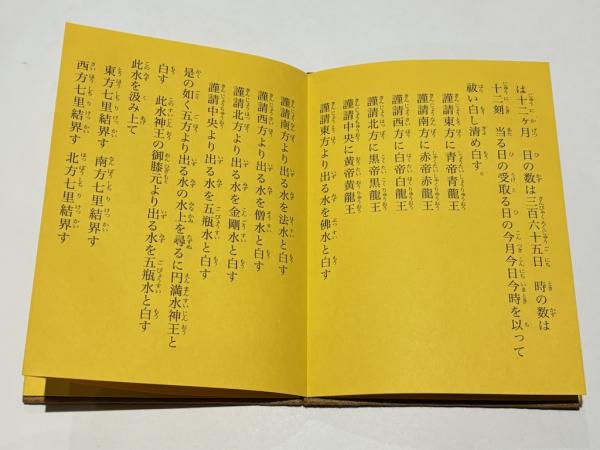 は十二ヶ月　日の数は三百六十五日　時の数は
十二刻　当る日の受取る日の今月今日今時を以って
祓い白し清め白す。
謹請東方に青帝青龍王
謹請南方に赤帝赤龍王
謹請西方に白帝白龍王
謹請北方に黒帝黒龍王
謹請中央に黄帝黄龍王
謹請東方より出る水を佛水と白す
謹請南方より出る水を法水と白す
謹請西方より出る水を僧水と白す
謹請北方より出る水を金剛水と白す
謹請中央より出る水を五瓶水と白す
是の如く五方より出る水の水上を尋るに円満水神王と
白す　此水神王の御膝元より出る水を五瓶水と白す
此水を汲み上て
東方七里結界す　南方七里結界す
西方七里結界す　北方七里結界す